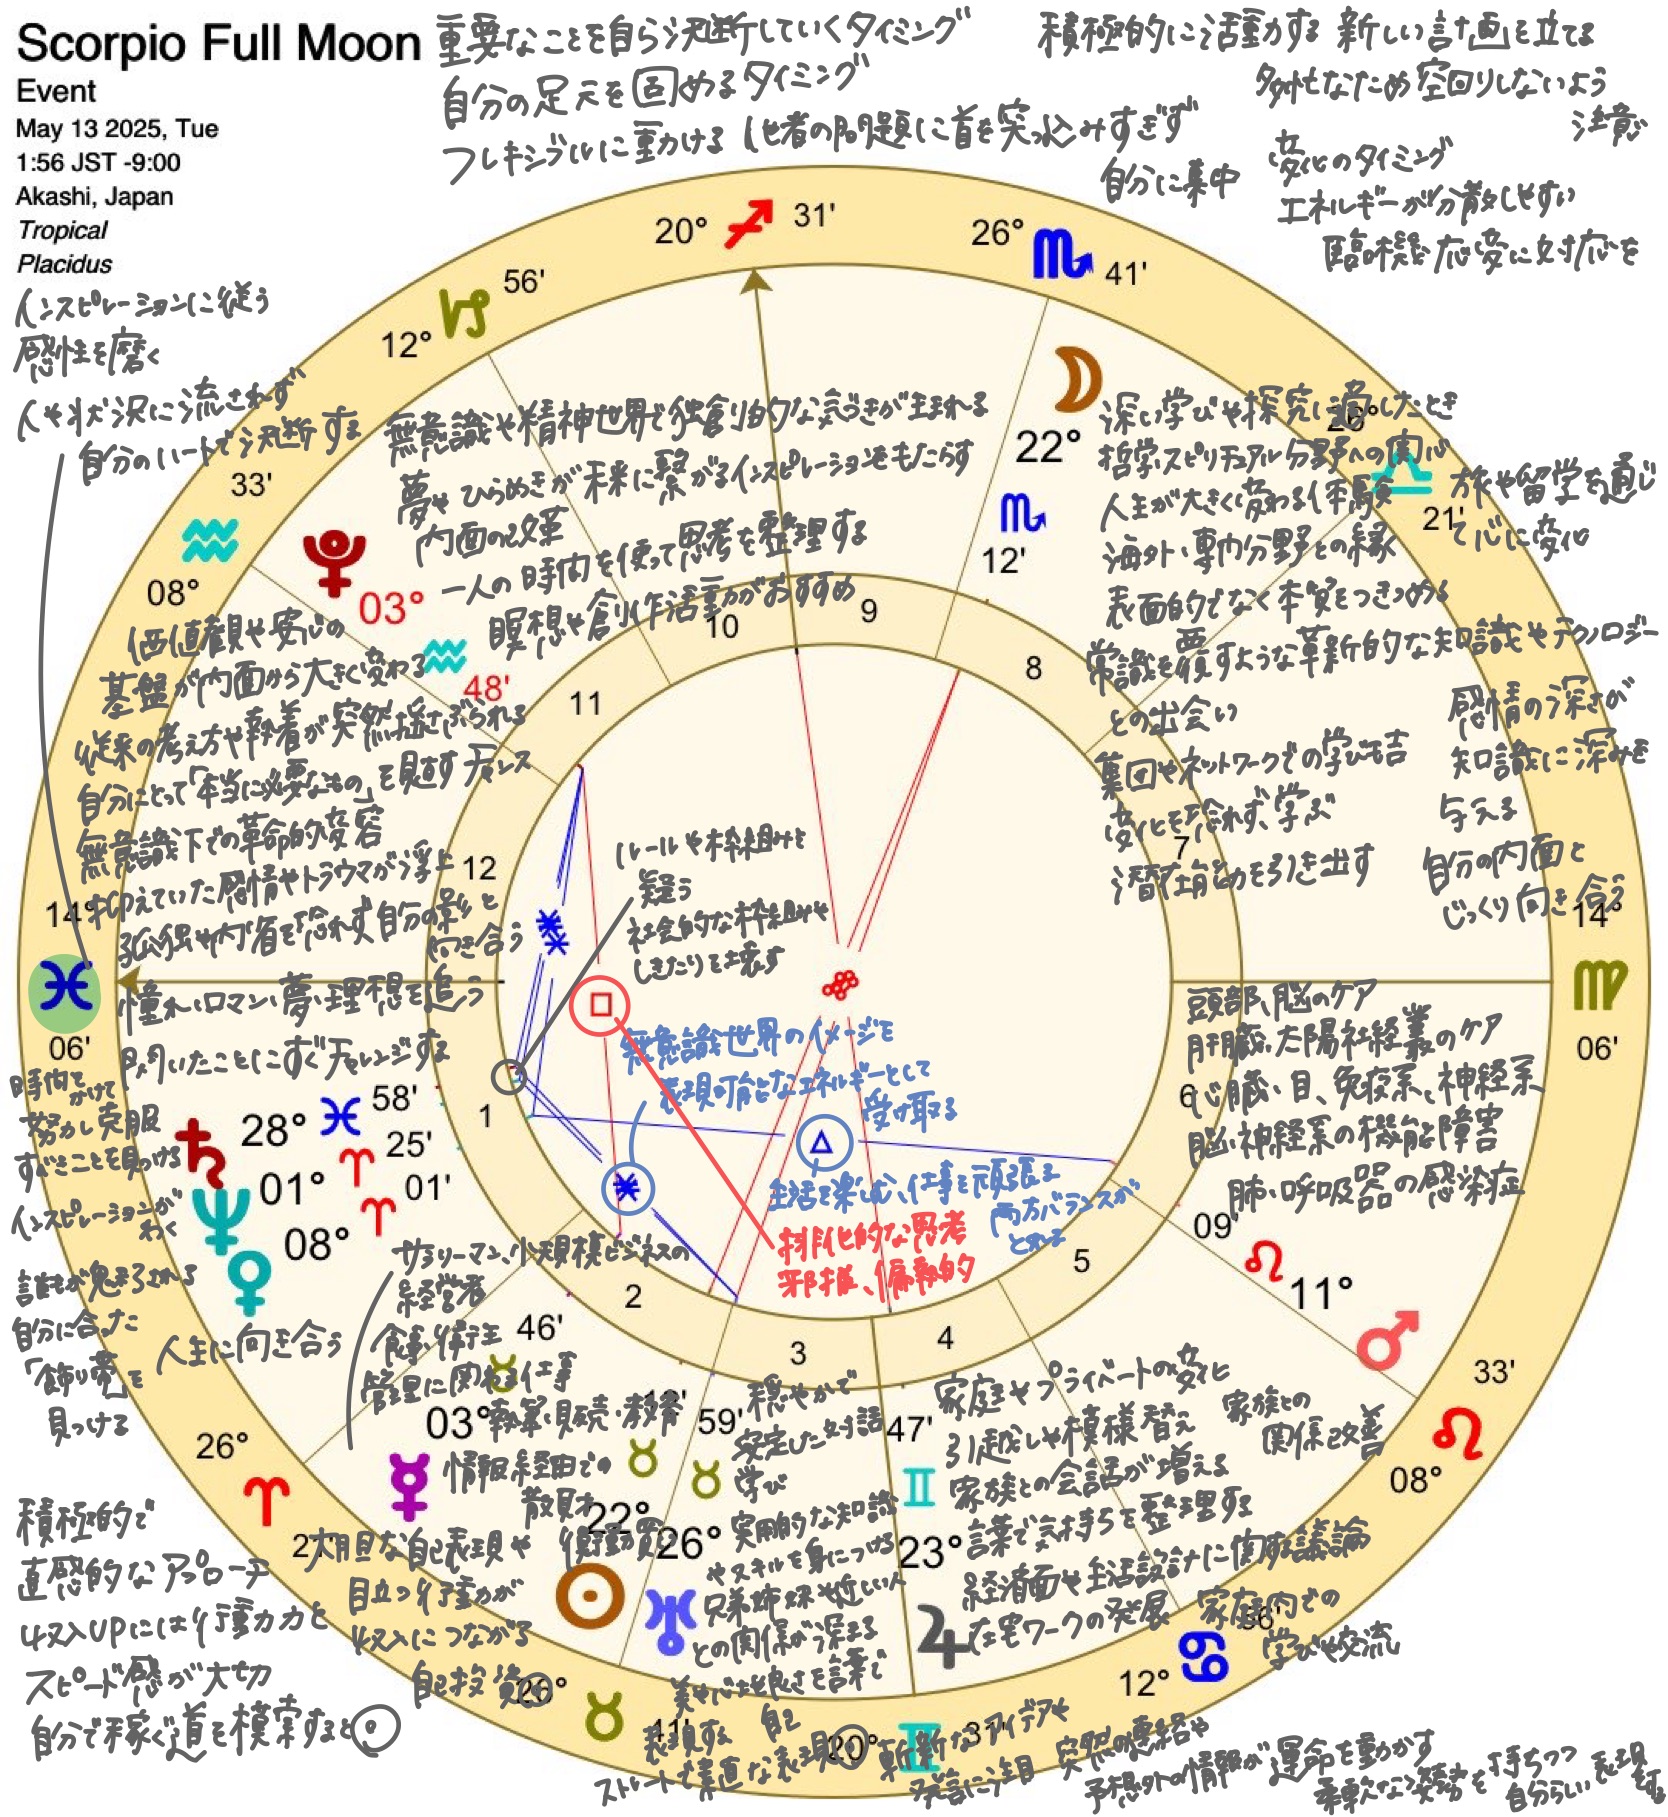 Scorpio Full Moon
Event
May 13 2025, Tue
1:56 JST -9:00
Akashi, Japan
Tropical
Placidus
重要なことを自ら決断していくタイミング
自分の足元を固めるタイミング
フレキシブルに動ける
他者の問題に首を突っ込みすぎず
自分に集中
積極的に活動する 新しい計画を立てる
多忙なため空回りしないよう
注意
変化のタイミング
エネルギーが分散しやすい
臨機応変に対応を
インスピレーションに従う
感性を磨く
人や状況に流されず
自分のハートで決断する
20° 31'
26° 41'
12° 56'
08° 33'
14° 06'
14° 06'
26°
21'
08° 33'
12°
無意識や精神世界で独創的な気づきが生まれる
夢やひらめきが未来に繋がるインスピレーションをもたらす
内面の改革
一人の時間を使って思考を整理する
瞑想や創作活動がおすすめ
03° 48'
22° 12'
深い学びや探究に適したとき
哲学、スピリチュアル分野への関心
人生が大きく変わる体験
海外、専門分野との縁
表面的でなく本質をつきつめる
常識を覆すような革新的な知識やテクノロジー
との出会い
集団やネットワークでの学びも吉
変化を恐れず、学ぶ
潜在能力を引き出す
旅や留学を通じ
て心に変化
感情の深さが
知識に深みを
与える
自分の内面と
じっくり向き合う
価値観や安心の
基盤が内面から大きく変わる
従来の考え方や執着が突然揺さぶられる
自分にとって「本当に必要なもの」を見直すチャンス
無意識下での革命的変容
抑えていた感情やトラウマが浮上
孤独や内省を恐れず自分の影と
向き合う
憧れ、ロマン、夢、理想を追う
閃いたことにすぐチャレンジする
ルールや枠組みを
疑う
社会的な枠組みや
しきたりを壊す
無意識世界のイメージを
表現可能なエネルギーとして
受け取る
生活を楽しむ、仕事を頑張る
両方バランスが
とれる
排他的な思考
邪推、偏執的
頭部、脳のケア
肝臓、太陽神経叢のケア
心臓、目、免疫系、神経系
脳、神経系の機能障害
肺、呼吸器の感染症
1
2
3
4
5
6
7
8
9
10
11
12
時間を
かけて
努力し克服
すべきことを見つける
インスピレーションが
わく
誰もが魅了される
自分に合った
「飾り帯」を
見つける
28° 58'
01° 25'
08° 01'
人生に向き合う
サラリーマン、小規模ビジネスの
経営者
食事、衛生
管理に関わる仕事
執筆、販売、教育
情報経由での
散財
衝動買い
03° 46'
22°
26° 59'
23° 47'
11° 09'
大胆な自己表現や
目立つ行動が
収入につながる
自己投資◎
積極的で
直感的なアプローチ
収入UPには行動力と
スピード感が大切
自分で稼ぐ道を模索すると◎
穏やかで
安定した対話
学び
実用的な知識
やスキルを身につける
兄弟姉妹や近しい人
との関係が深まる
美や心地良さを言葉で
表現する
ストレートで素直な自己表現◎
家庭やプライベートの変化
引越しや模様替え
家族との会話が増える
言葉で気持ちを整理する
経済面や生活設計に関する議論
在宅ワークの発展
家族との
関係改善
家庭内での
学びや交流
斬新なアイデアや
発言に注目
突然の連絡や
予想外の情報が運命を動かす
柔軟な姿勢を持ちつつ
自分らしい表現
する